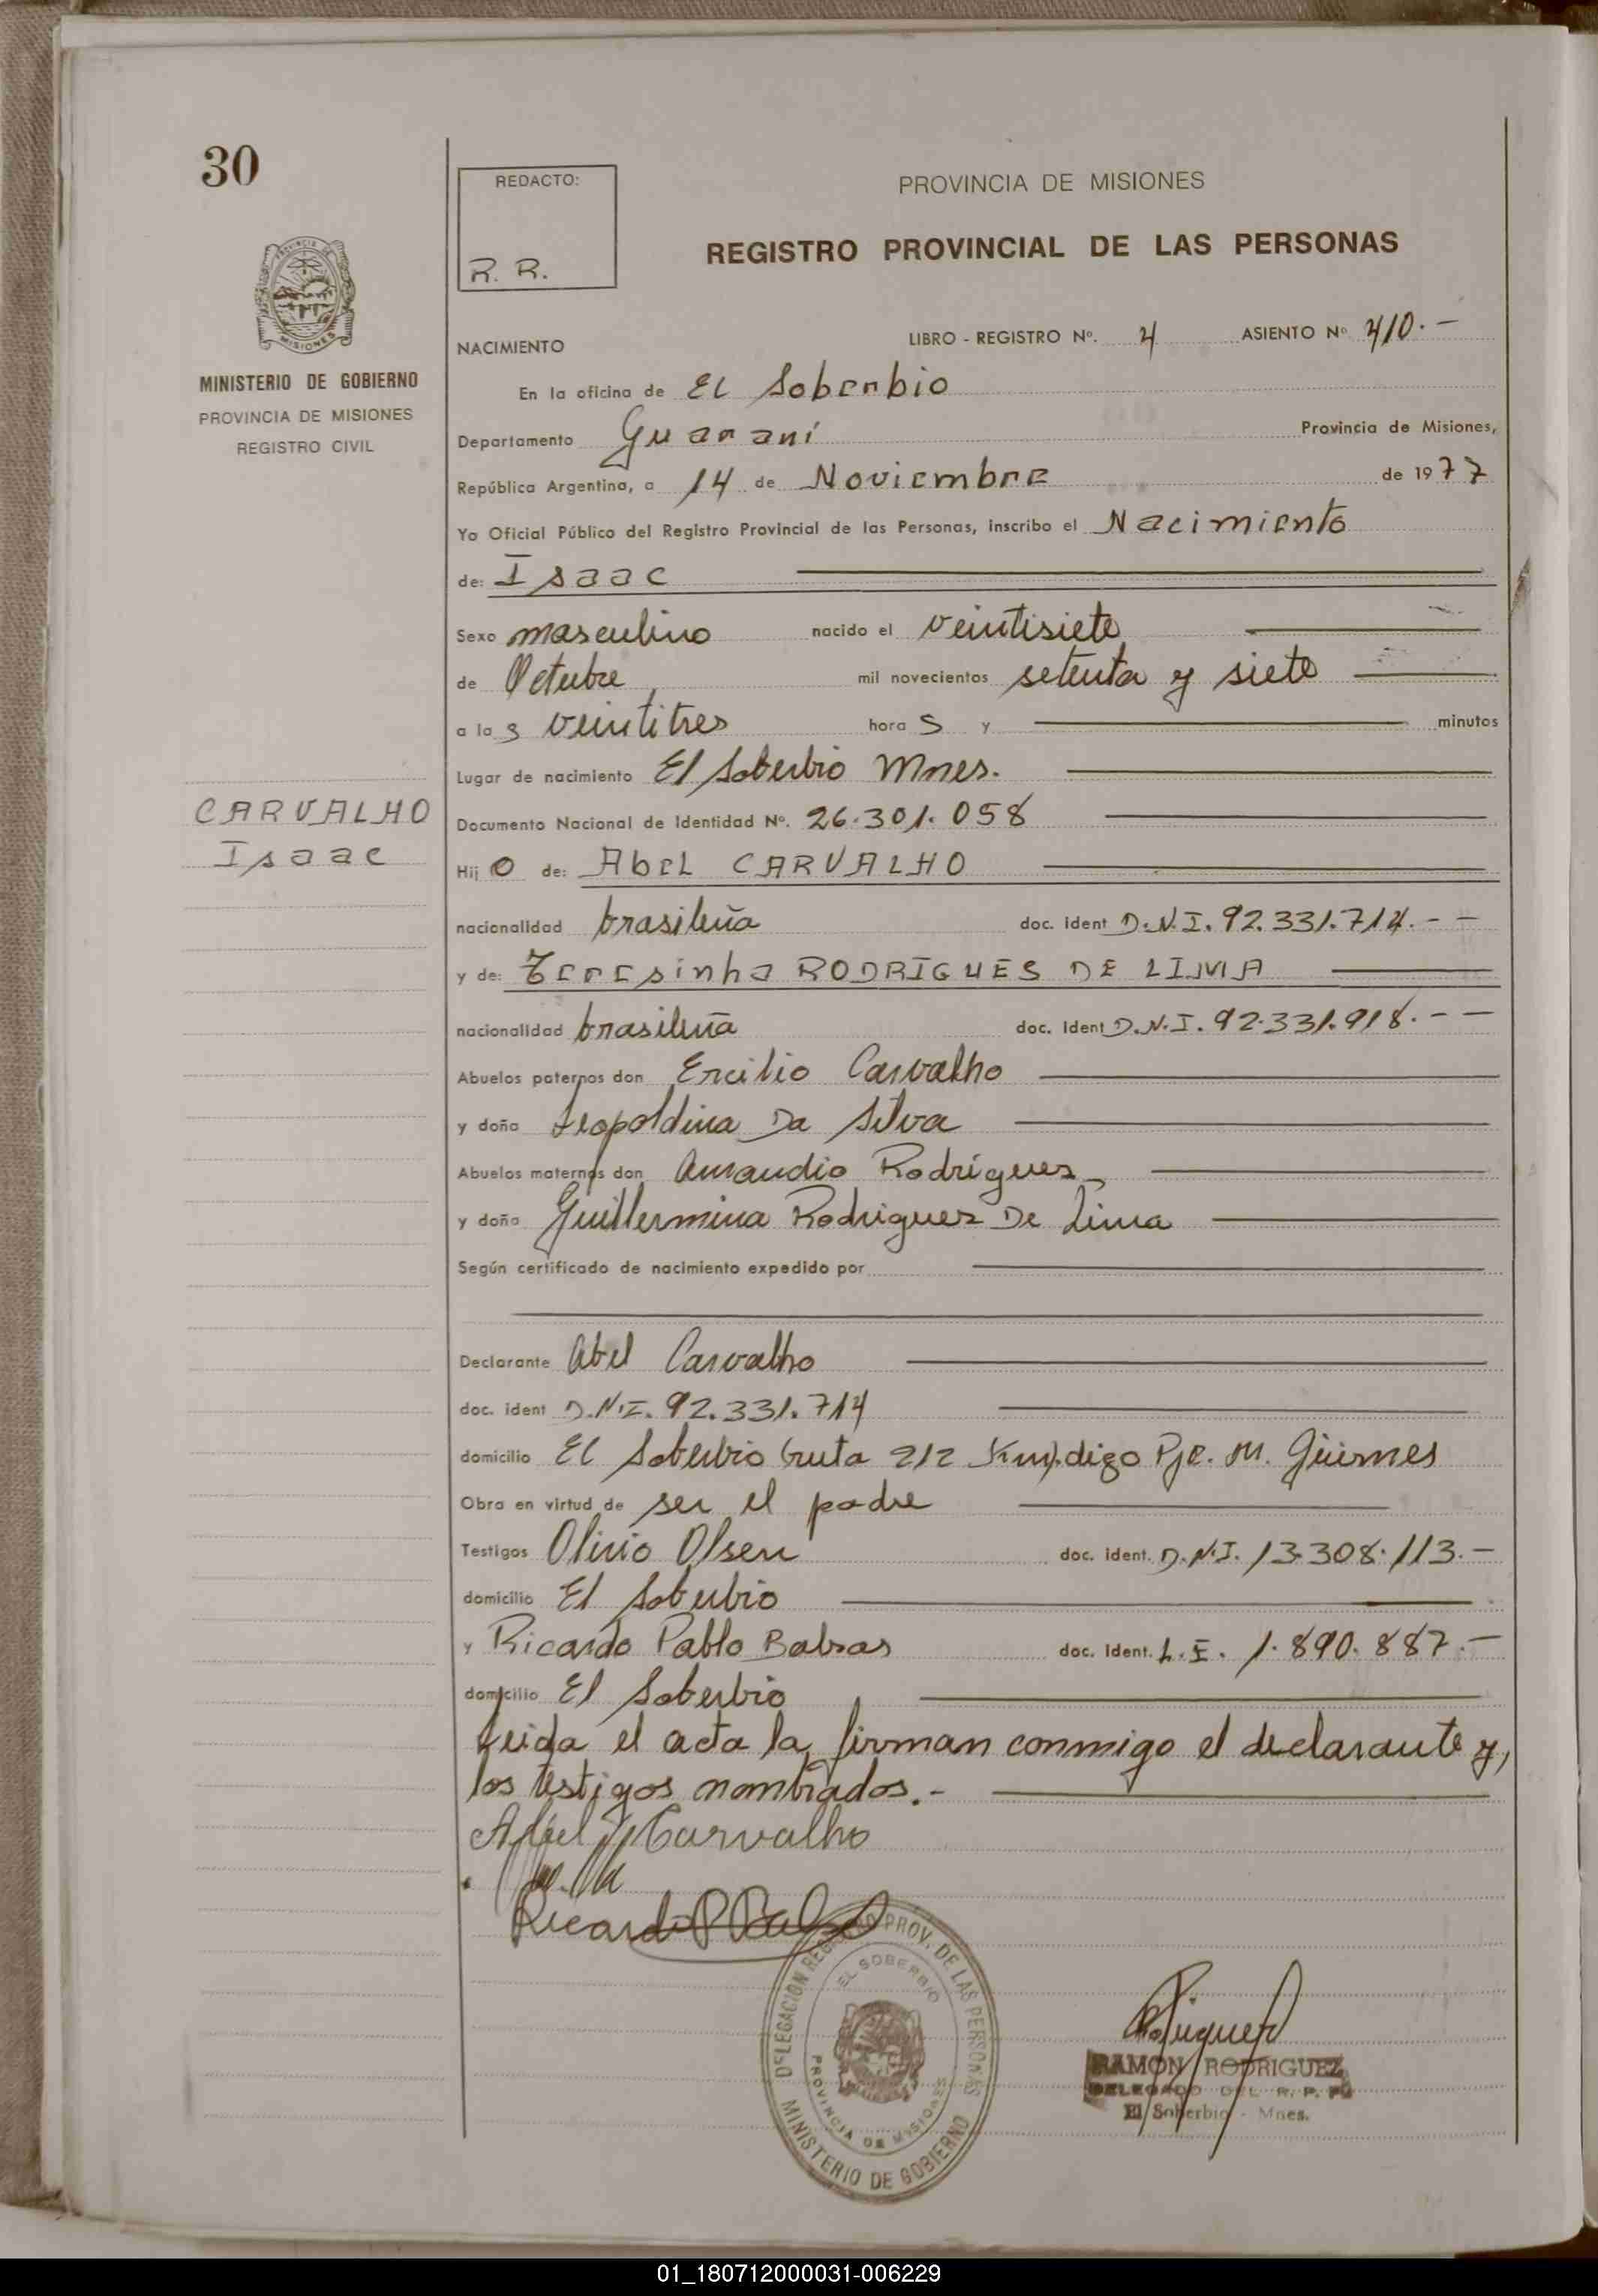 30
REDACTO:
R. R.
PROVINCIA DE MISIONES
REGISTRO PROVINCIAL DE LAS PERSONAS
MISIONES
MINISTERIO DE GOBIERNO
PROVINCIA DE MISIONES
REGISTRO CIVIL
NACIMIENTO
LIBRO - REGISTRO Nº. 4 ASIENTO Nº 410.-
En la oficina de El Soberbio
Departamento Guaraní Provincia de Misiones,
República Argentina, a 14 de Noviembre de 1977
Yo Oficial Público del Registro Provincial de las Personas, inscribo el Nacimiento
de: Isaac
Sexo masculino nacido el veintisiete
de Octubre, mil novecientos setenta y siete
a las veintitres horas y minutos
Lugar de nacimiento El Soberbio Mnes.
CARVALHO
Isaac
Documento Nacional de Identidad Nº. 26.301.058
Hijo de: Abel CARVALHO
nacionalidad brasileña doc. ident D.N.I. 92.331.714.--
y de: Teresinha RODRIGUES DE LIMA
nacionalidad brasileña doc. ident D.N.I. 92.331.918.--
Abuelos paternos don Ercilio Carvalho
y doña Leopoldina Da Silva
Abuelos maternos don Amaudio Rodrígues
y doña Guillermina Rodriguez De Lima
Según certificado de nacimiento expedido por
Declarante Abel Carvalho
doc. ident D.N.I. 92.331.714
domicilio El Soberbio (ruta 212 Km). digo Pje. M. Güemes
Obra en virtud de ser el padre
Testigos Olivio Olsen doc. ident. D.N.I. 13.308.113.-
domicilio El Soberbio
y Ricardo Pablo Balsas doc. ident. L.E. 1.890.887.-
domicilio El Soberbio
Leida el acta la firman conmigo el declarante y,
los testigos nombrados.-
Abel Carvalho
Ricardo P
DELEGACION REGISTRO PROV. DE LAS PERSONAS
EL SOBERBIO
PROVINCIA DE MISIONES
MINISTERIO DE GOBIERNO
RAMON RODRIGUEZ
DELEGADO DEL R. P. P.
El Soberbio - Mnes.
01_180712000031-006229